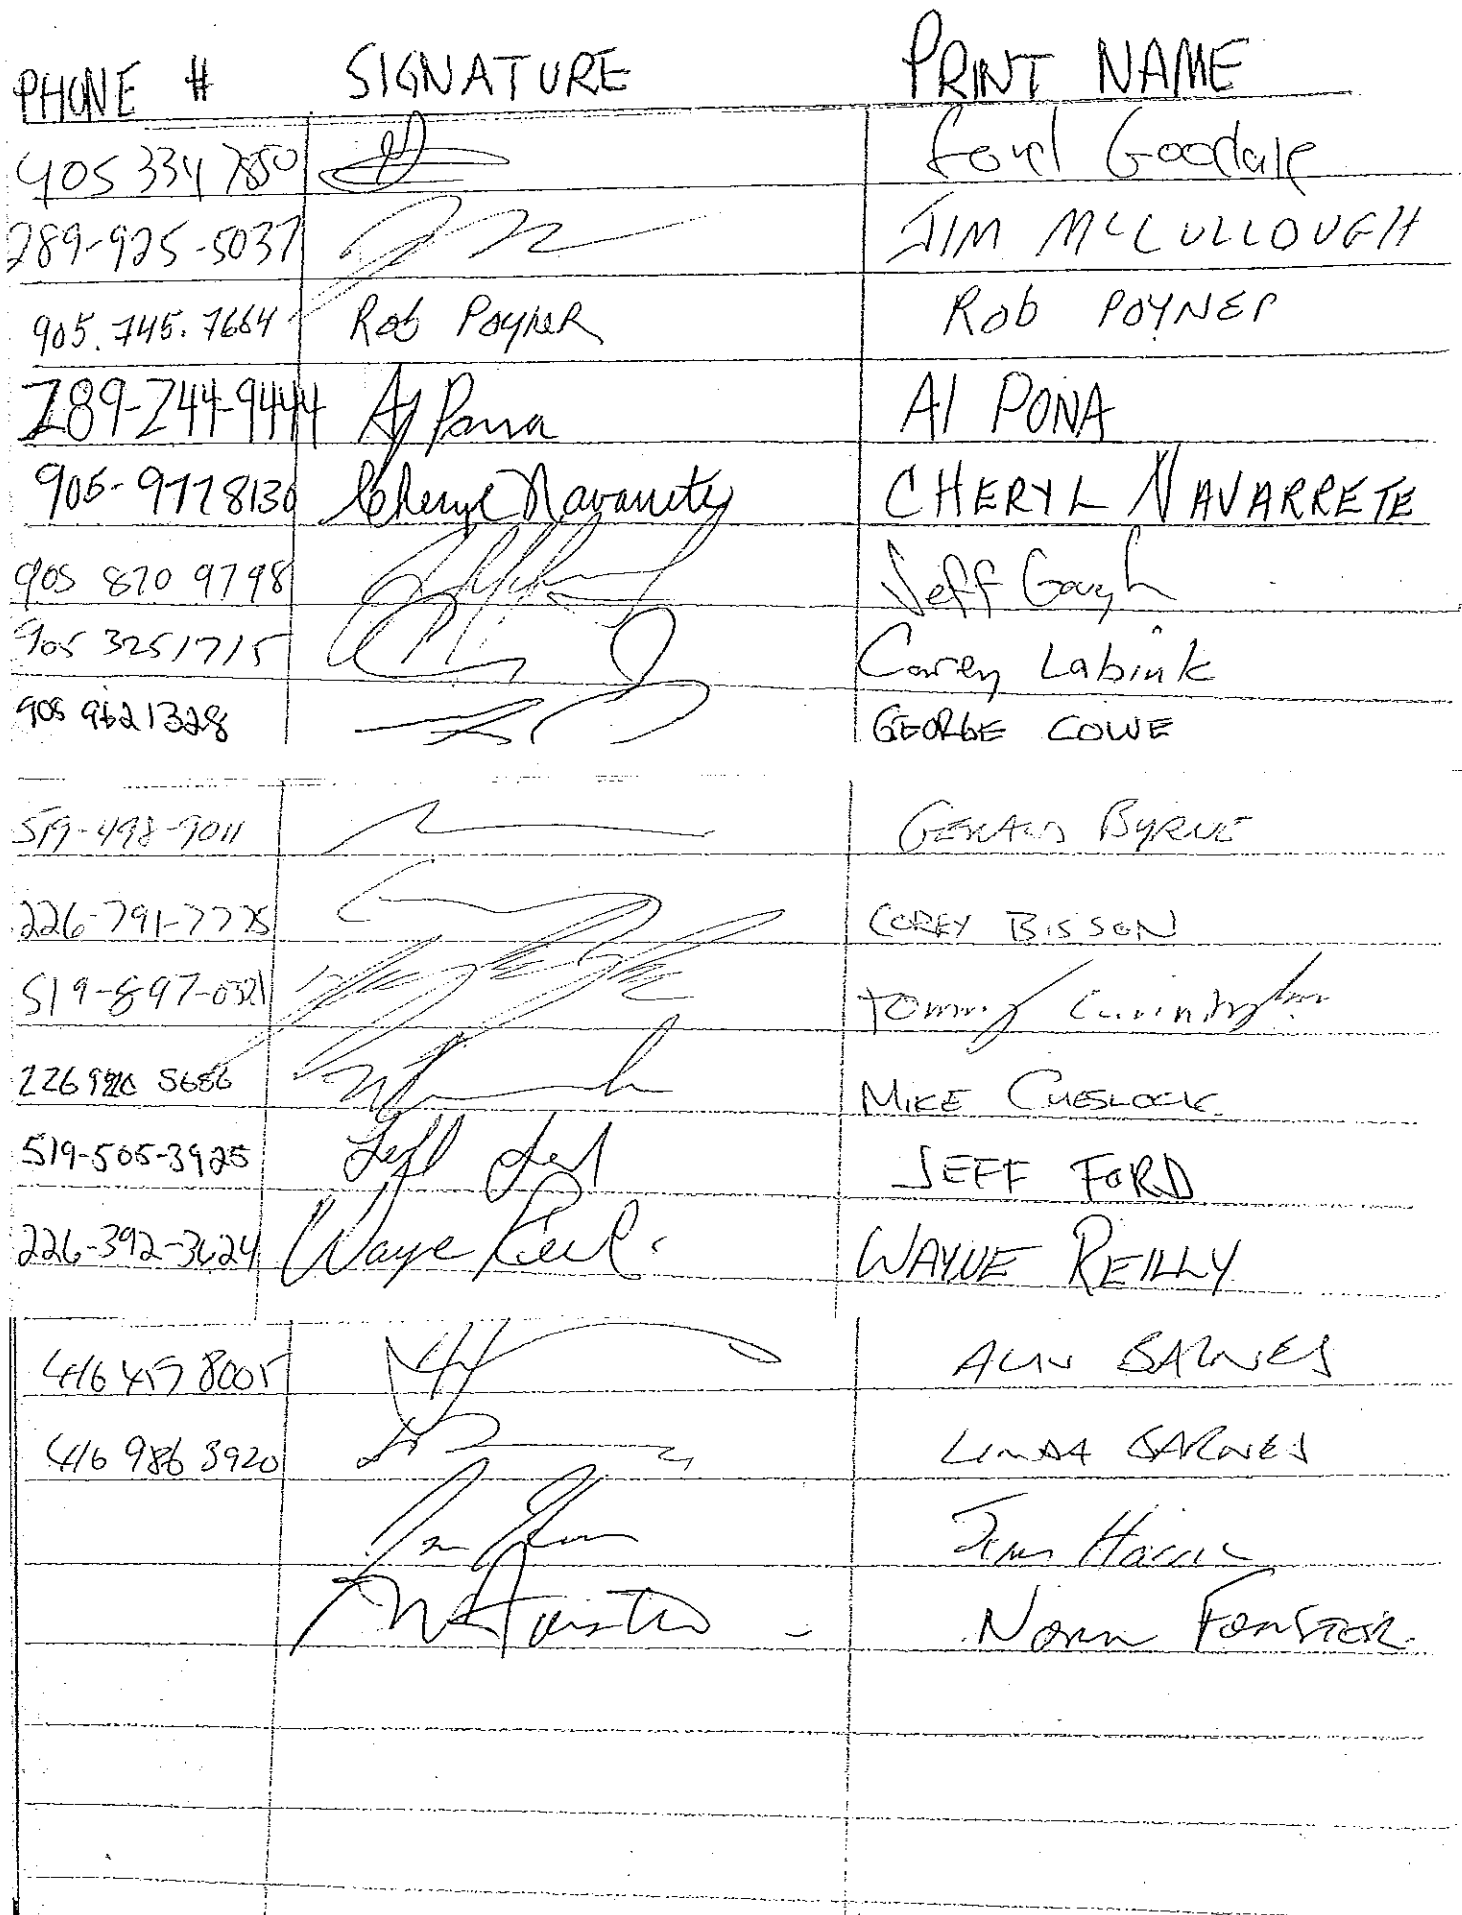 PHONE # SIGNATURE PRINT NAME
905 334 7850 Ford Goodale
289-925-5037 JIM MCCULLOUGH
905.745.7664 Rob Poyner Rob POYNER
289-244-9444 Al Pona Al PONA
905-9778130 Cheryl Navarrete CHERYL NAVARRETE
905 870 9798 Jeff Gough
905 3251715 Corey Labink
905 9621328 GEORGE COWE
519-498-9011 GERALD BYRNE
226-791-7775 COREY BISSON
519-897-0321 Tommy
226 5686 MIKE CHESLOCK
519-505-3925 Jeff JEFF FORD
226-392-3624 Wayne WAYNE REILLY
416 8005 ALAN BARNES
416 986 3920 LINDA BARNES
Harris
Norm FORSTER